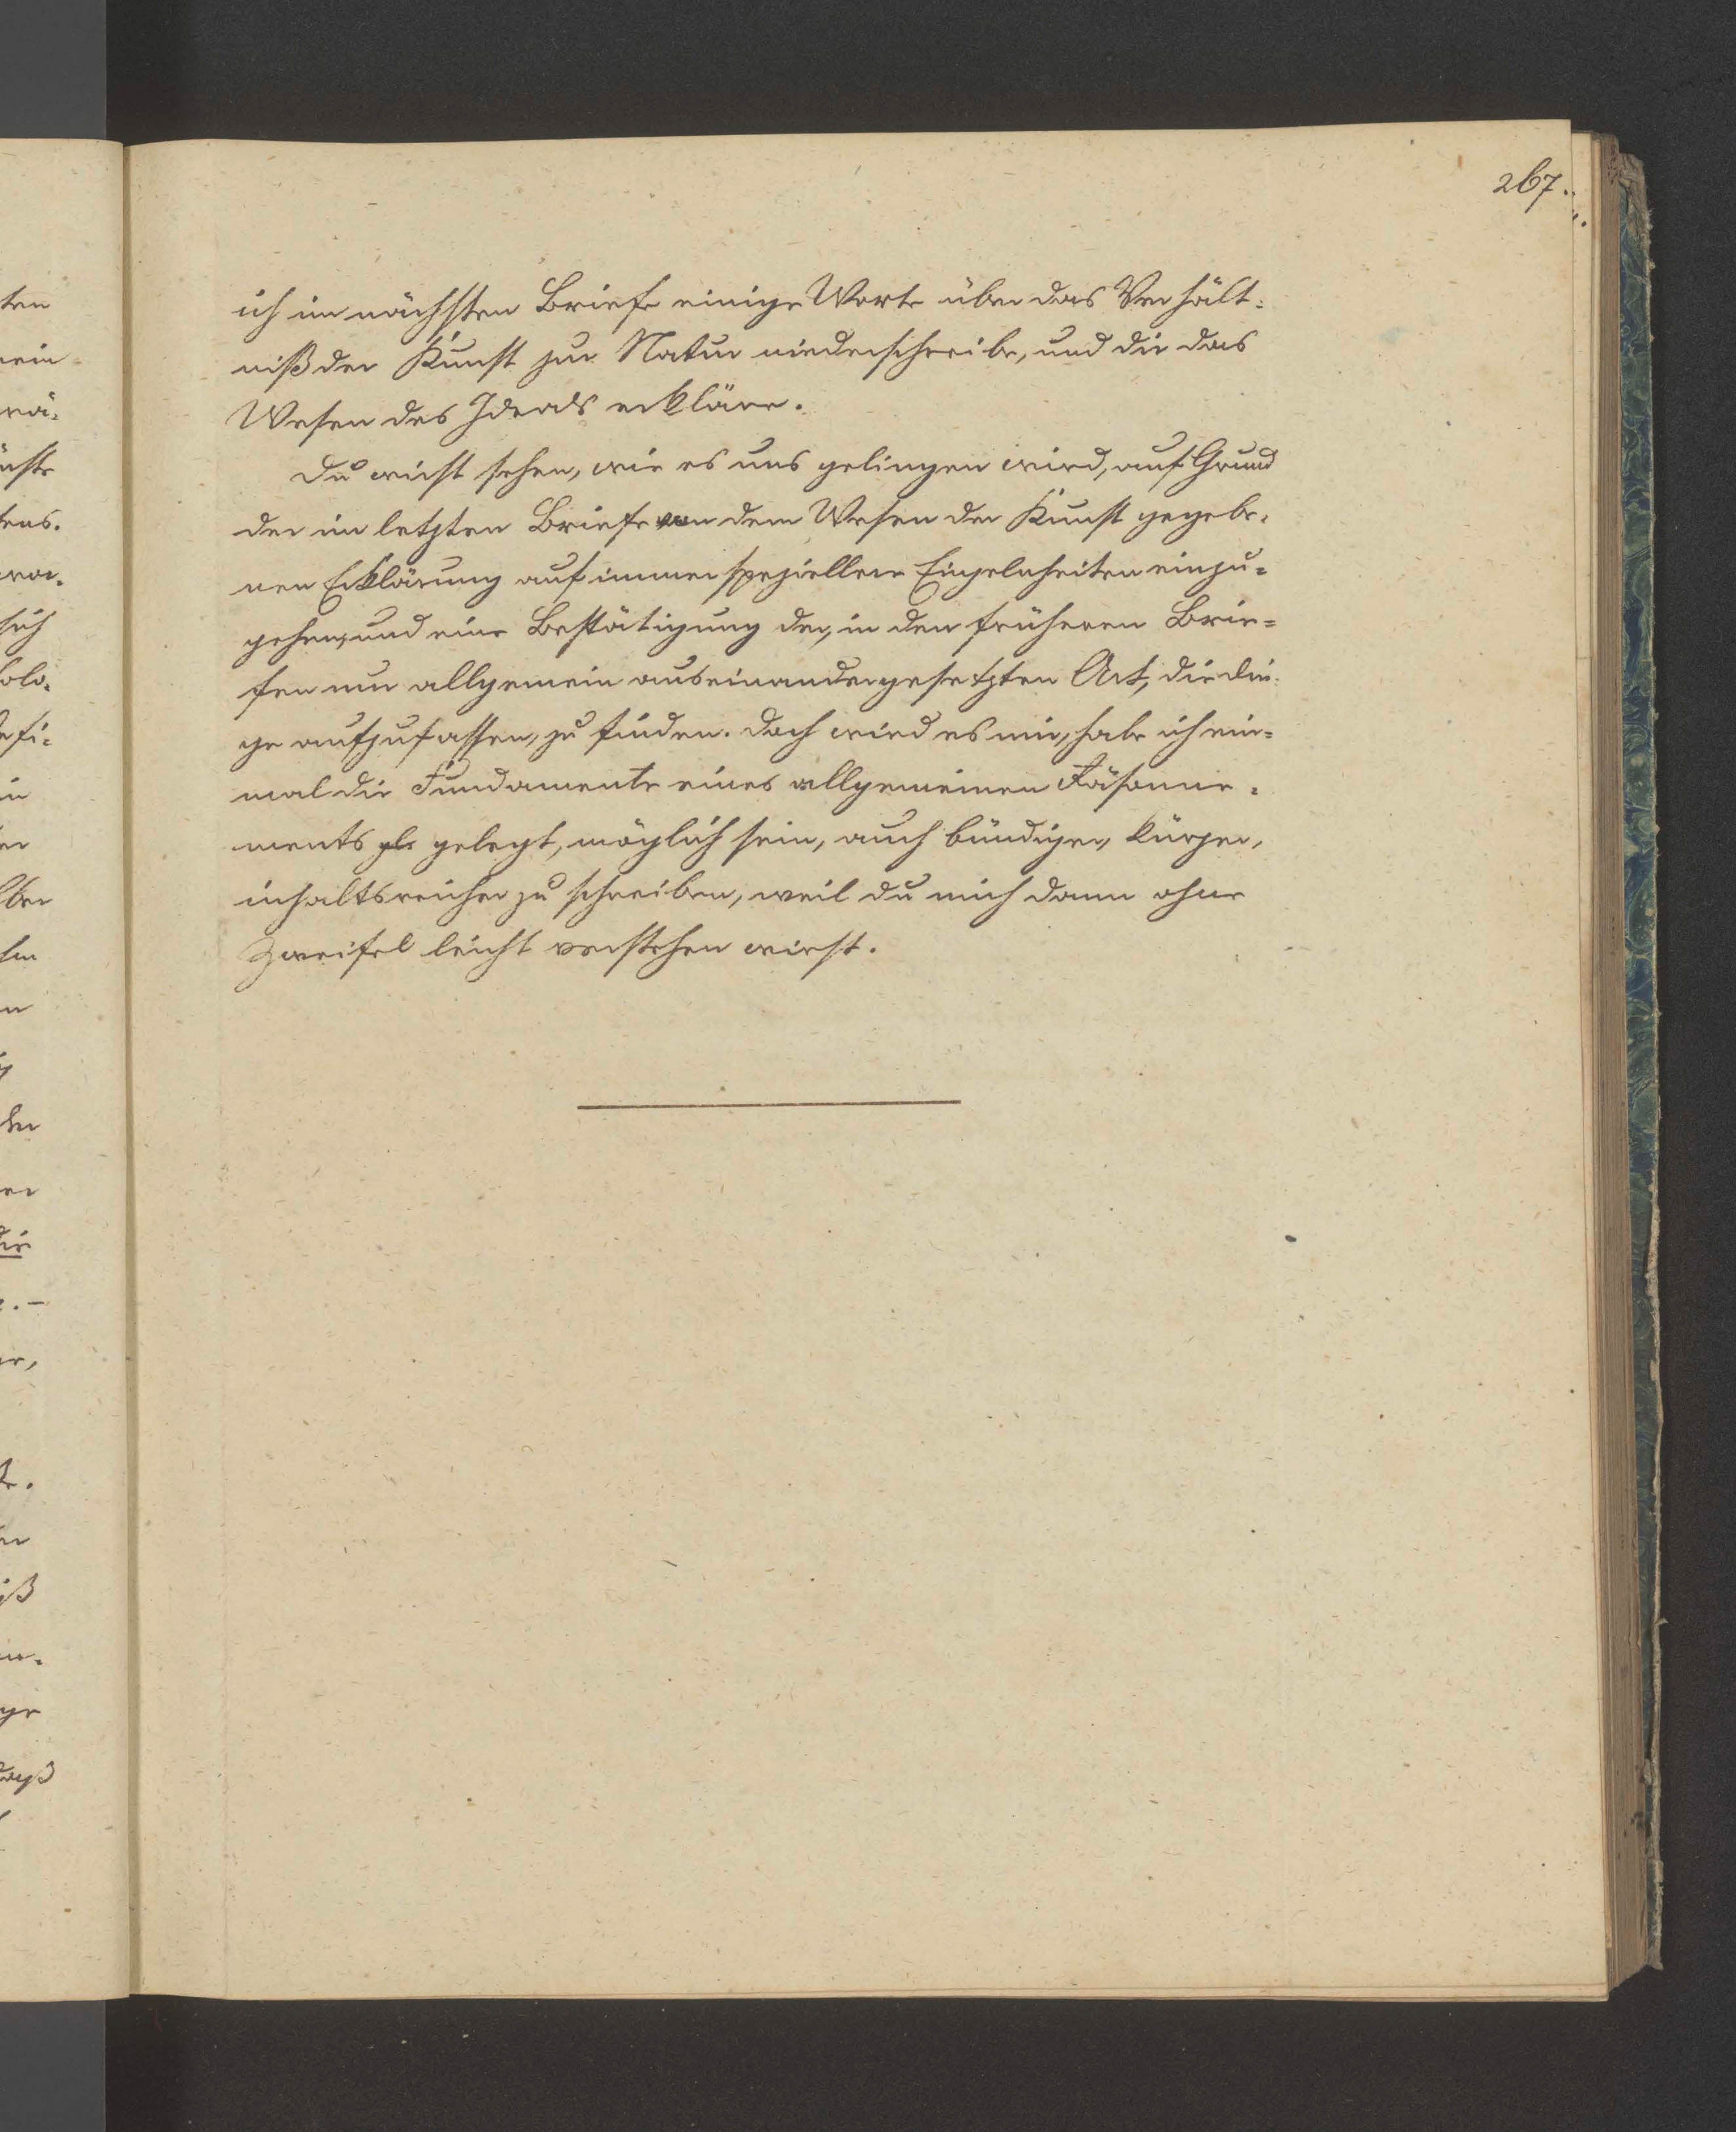 267.
ich im nächsten Briefe einige Worte über das Verhält-
niß der Kunst zur Natur niederschreibe, und dir das
Wesen des Ideals erkläre.
Du wirst sehen, wie es uns gelingen wird, auf Grund
der im letzten Briefe von dem Wesen der Kunst gegebe-
nen Erklärung auf immer speziellere Einzelnheiten einzu-
gehen, und eine Bestätigung der, in den früheren Brie-
fen nur allgemein auseinandergesetzten Art, die Din-
ge aufzufassen, zu finden. Doch wird es mir, habe ich ein-
mal die Fundamente eines allgemeinen Räsonne-
ments gelegt, möglich sein, auch bündiger, kürzer,
inhaltsreicher zu schreiben, weil du mich dann ohne
Zweifel leicht verstehen wirst.